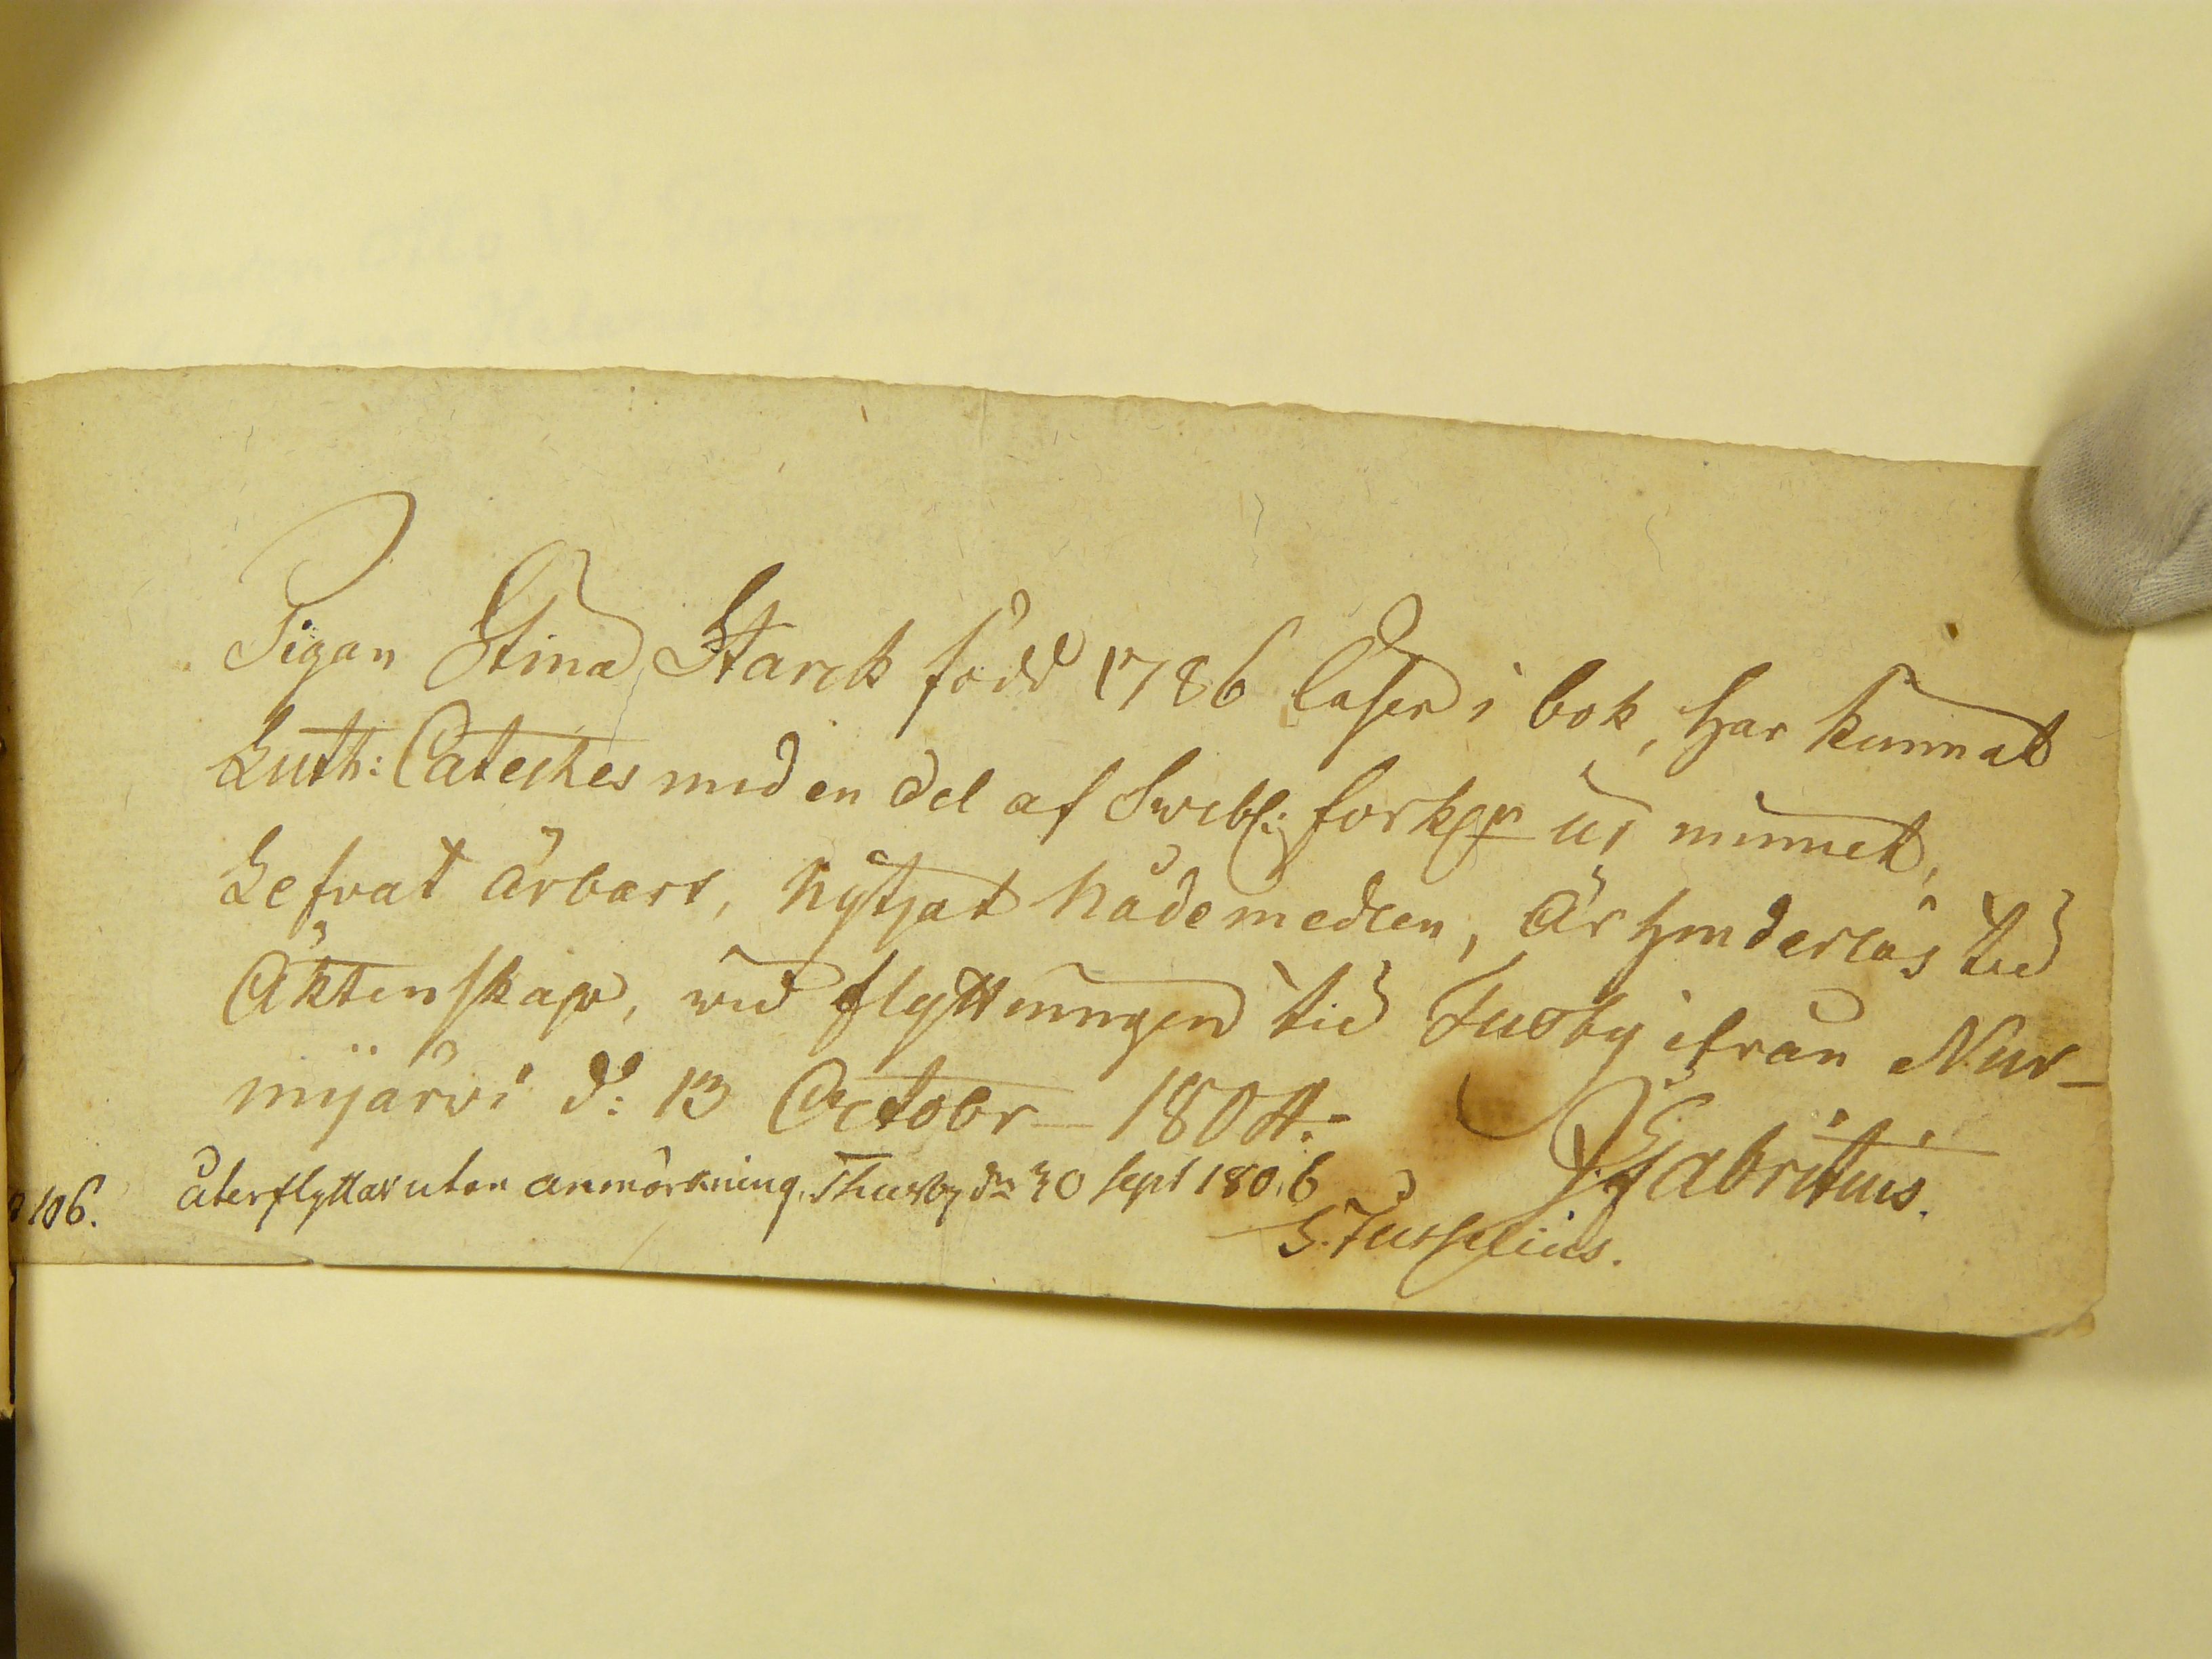 Pigan Stina Starck född 1786 läser i bok, har kunnat
Luth: Cateches med en del af Swebl: forkl:gn ur minnet,
Lefvat ärbart, nytjat nådemedlen, är hinderlös till
Äktenskap, vid flyttningen till Tusby ifrån Nur-
mijärvi d: 13 Octobr 1804.
J Fabritius.
återflyttar utan anmärkning. Thusby dn 30 Sept 1806
G. Tusselius.
106.